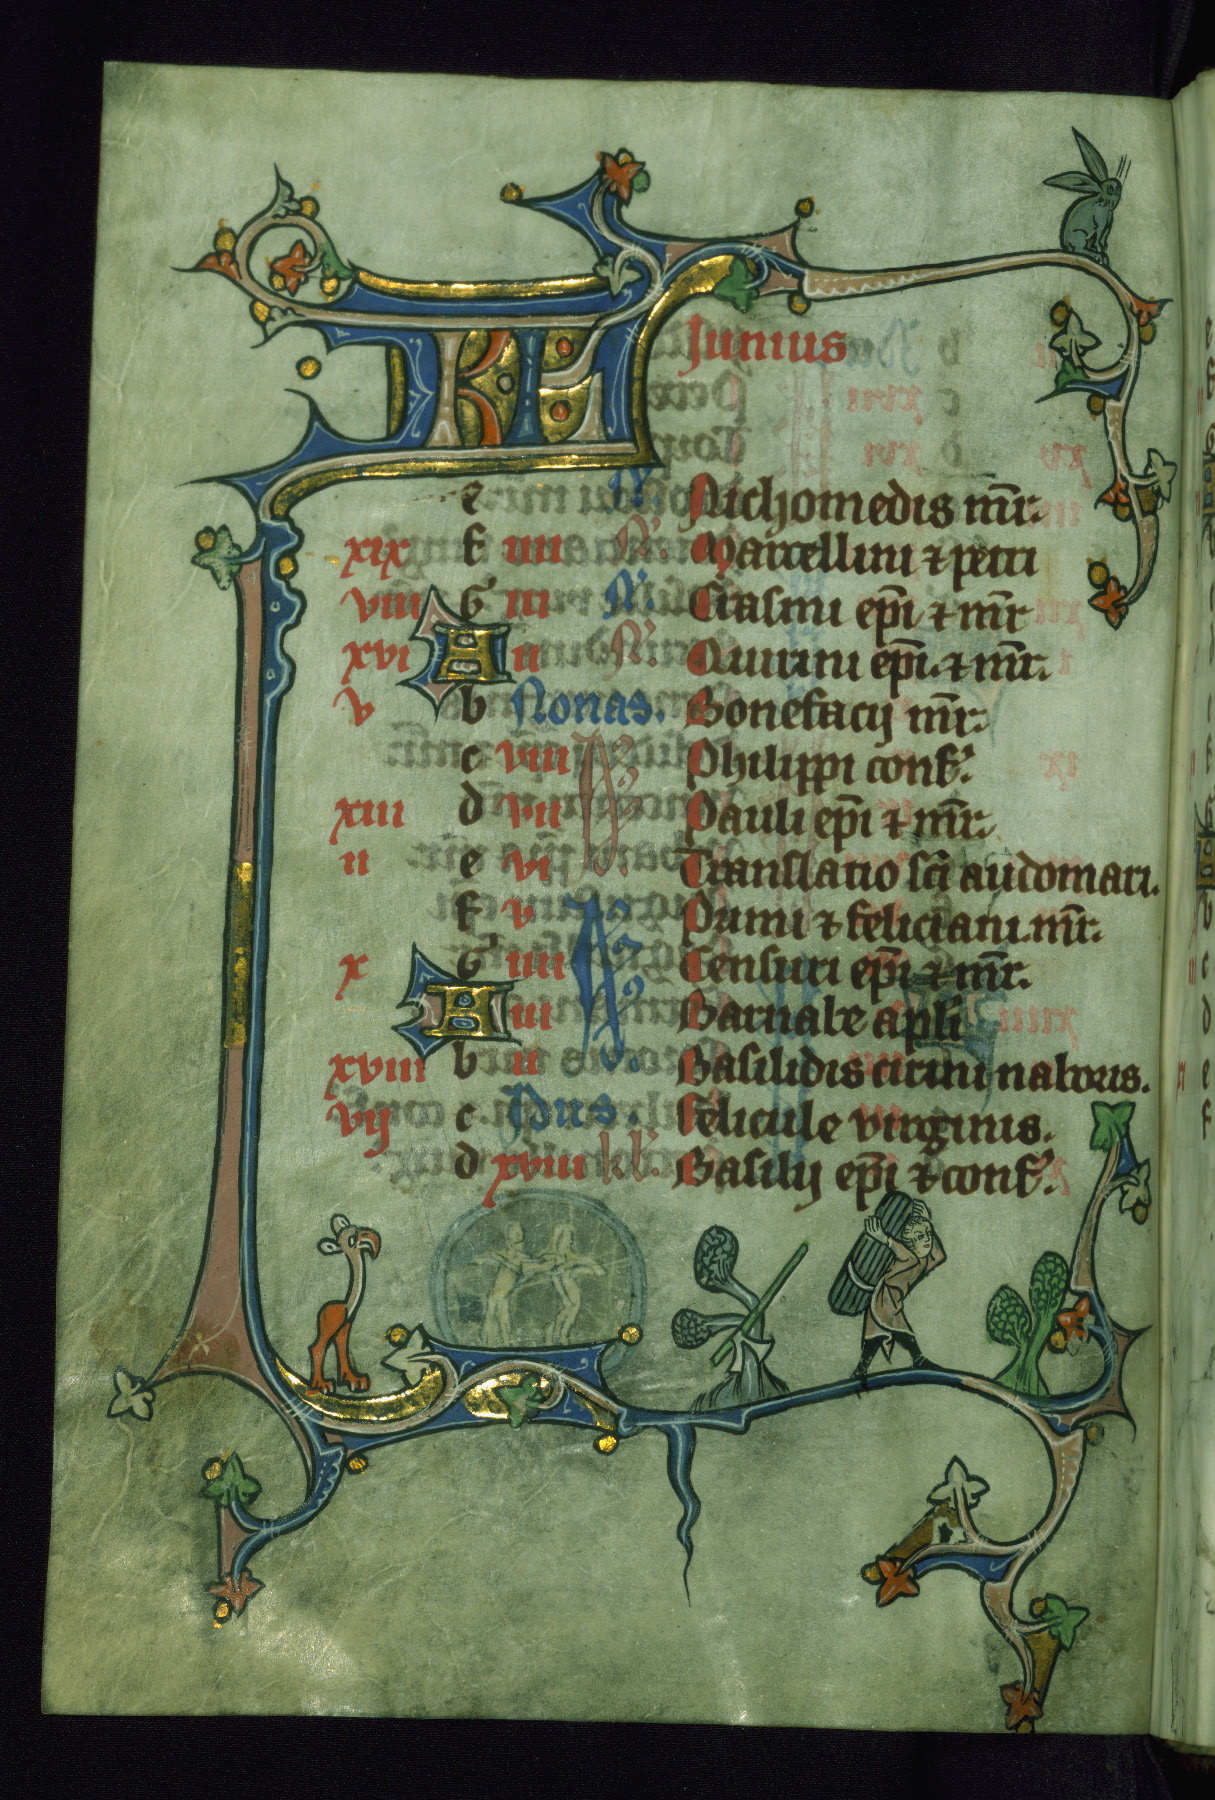 KL Junius
e N̅ Nichomedis m̅r.
xix f iiii N̅. Marcellini ⁊ petri
viii G iii N̅. Erasmi ep̅i ⁊ m̅r
xvi A ii N̅. Quirini ep̅i. ⁊ m̅r.
v b Nonas. Bonefacij m̅r.
c viii Philippi conf̅.
xiii d vii Pauli ep̅i ⁊ m̅r.
ii e vi Translatio sc̅i audomari.
f v Primi ⁊ feliciani. m̅r.
x G iiii Censuri ep̅i ⁊ m̅r.
A iii Barnabe apl̅i
xviii b ii Basilidis cirini naboris.
vij c Idus. Felicule virginis.
d xviii kl̅. Basilij ep̅i ⁊ conf̅.